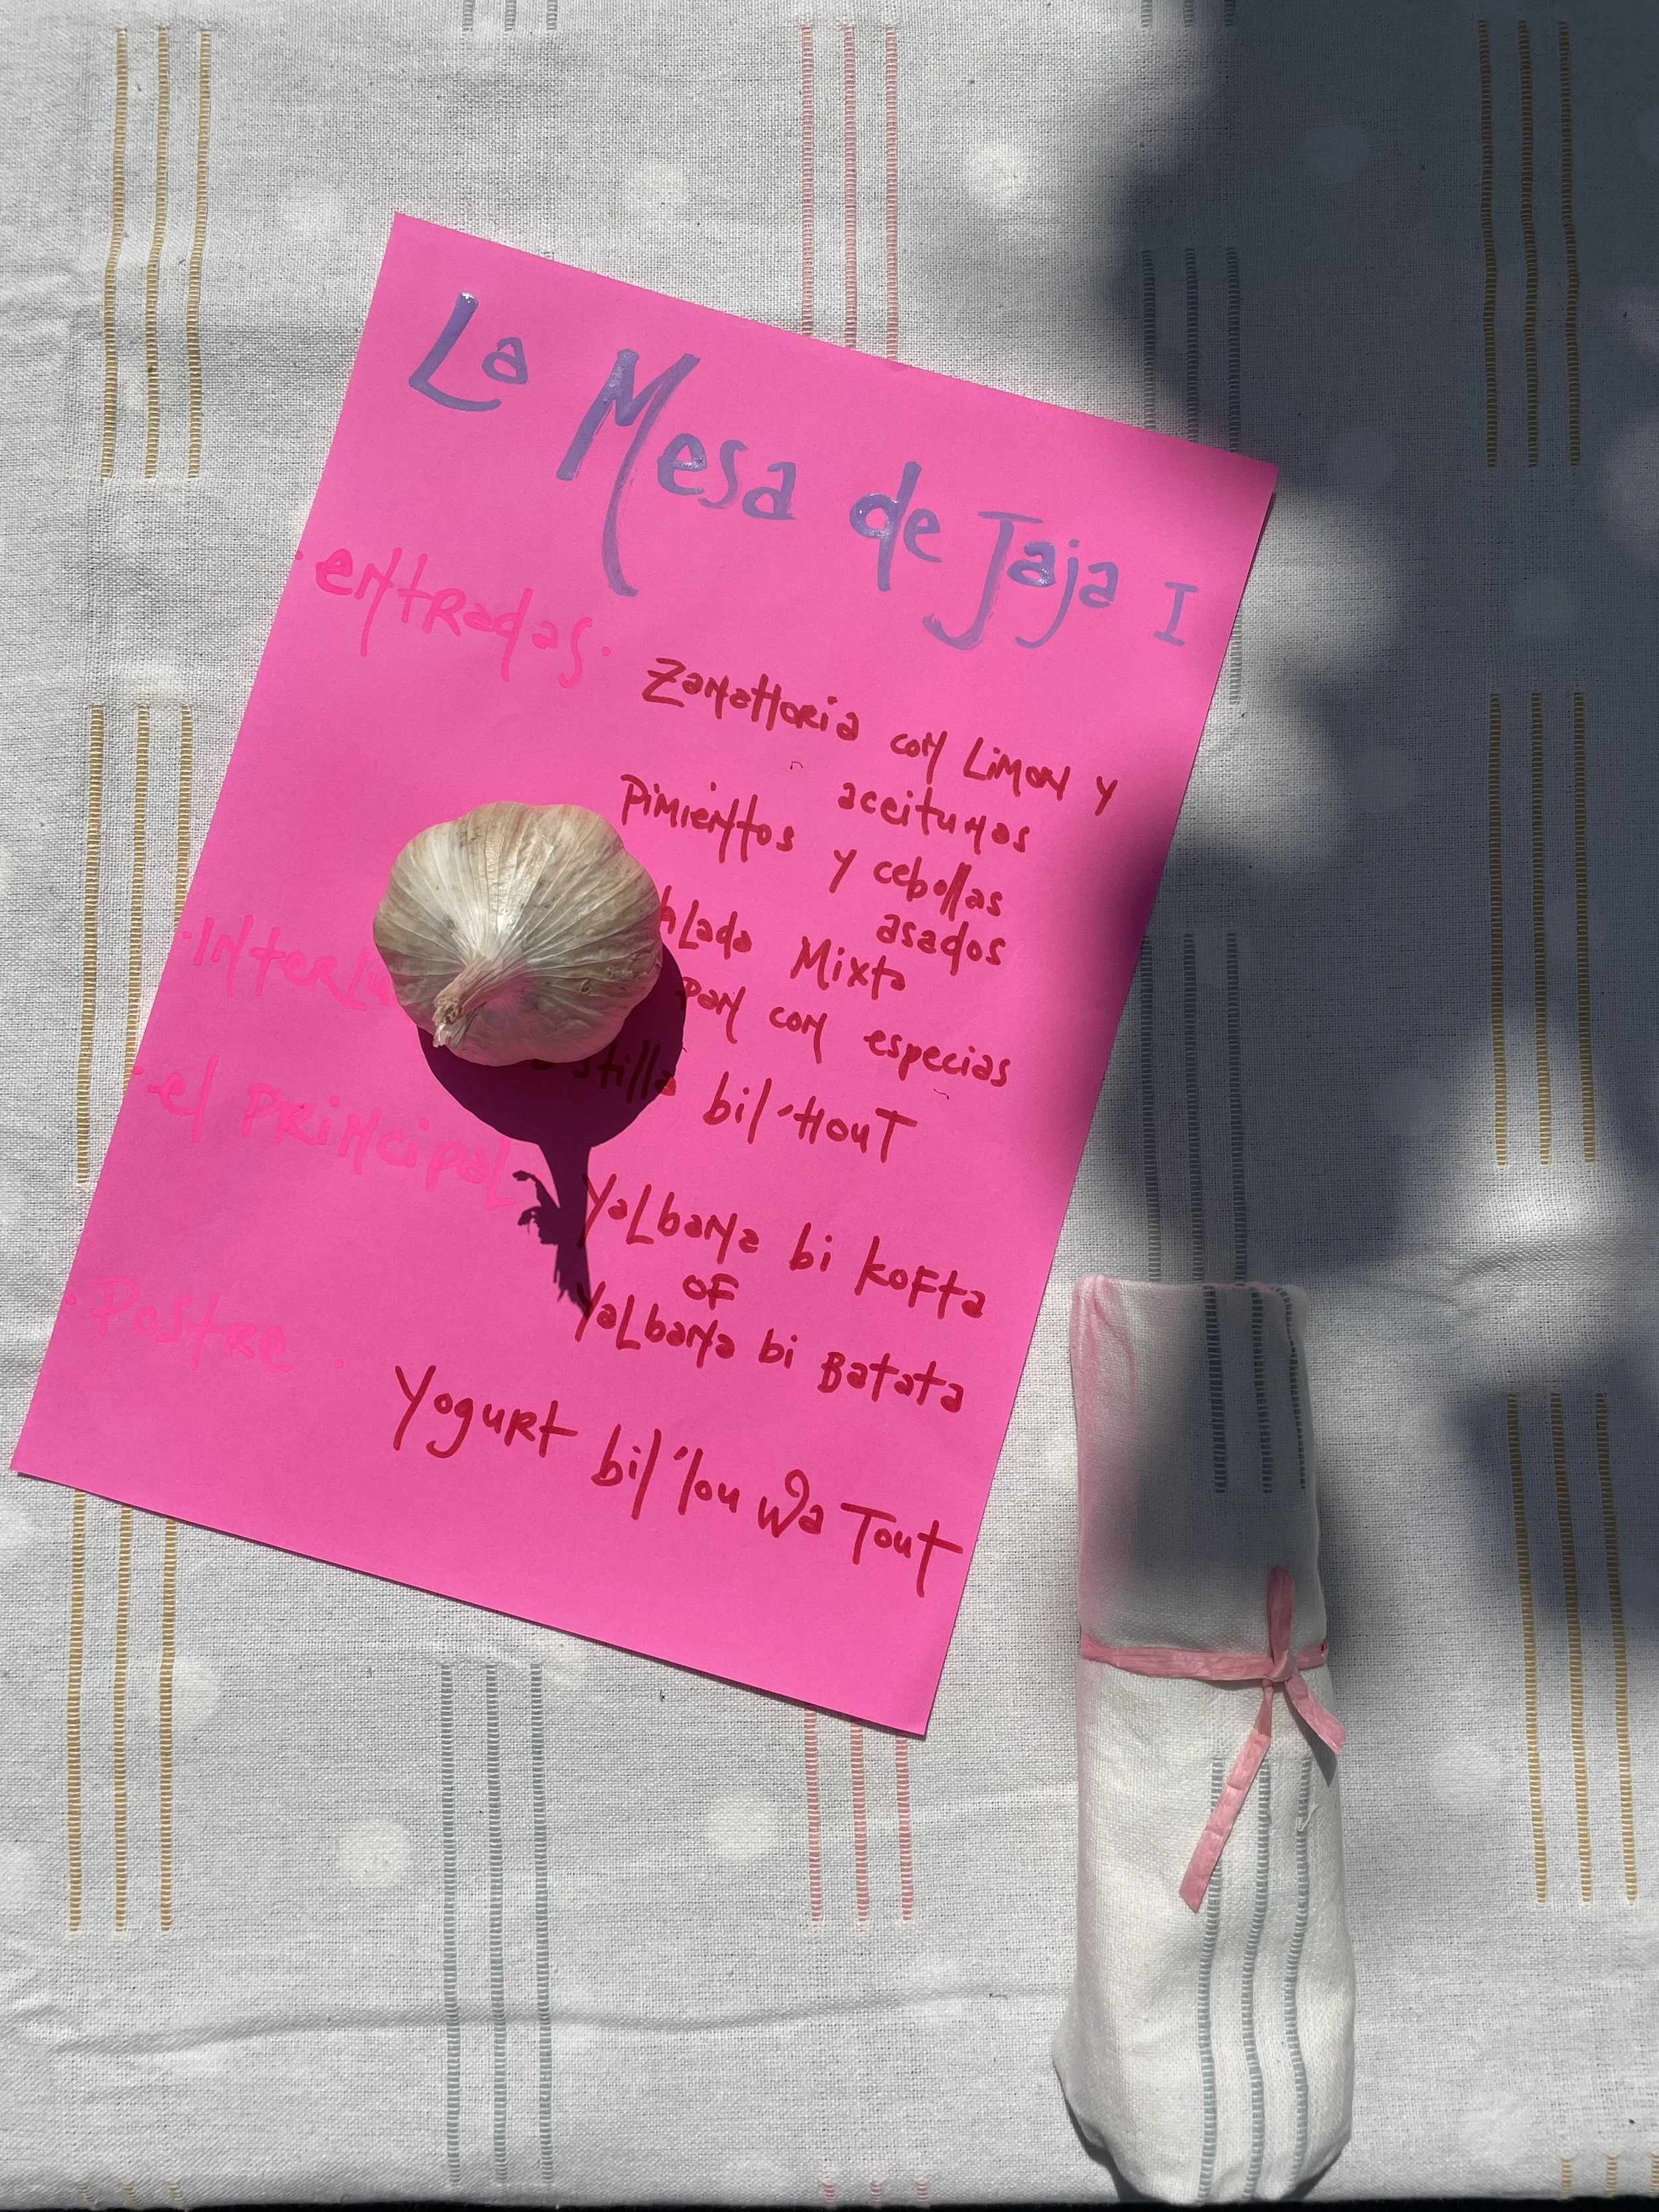 La Mesa de Jaja I
·entradas·
Zanahoria con Limon y
aceitunas
Pimientos y cebollas
asados
Mixta
pan con especias
bil'Hout
·el principal
Yalbana bi kofta
OF
Yalbana bi Batata
·Postre·
Yogurt bil'lou wa Tout